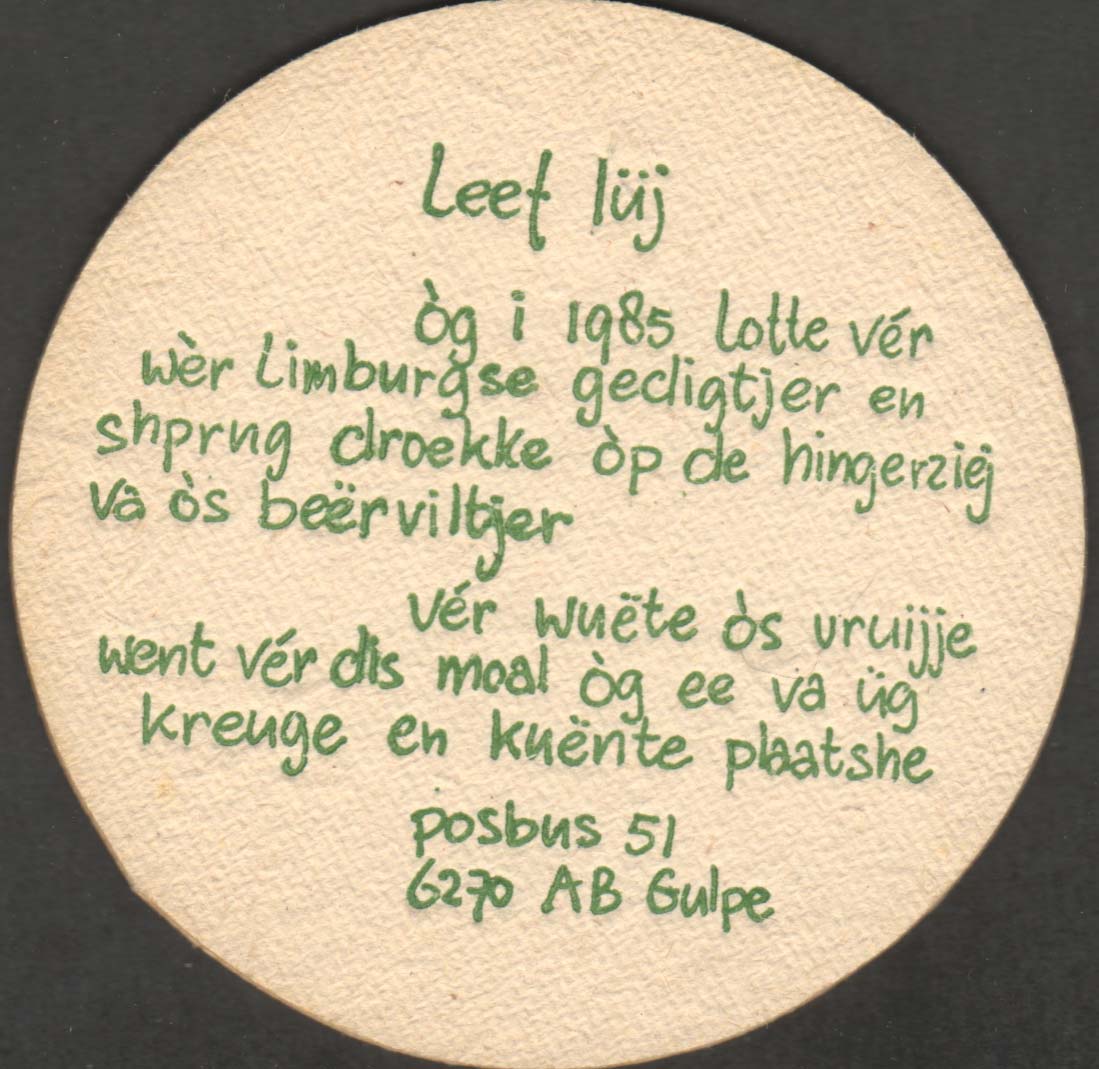 Leef lüj
òg i 1985 lotte vér
wèr Limburgse gedigtjer en
shprug droekke òp de hingerziej
va òs beërviltjer
vér wuëte òs vruijje
went vér dis moal òg ee va üg
kreuge en kuënte plaatshe
posbus 51
6270 AB Gulpe